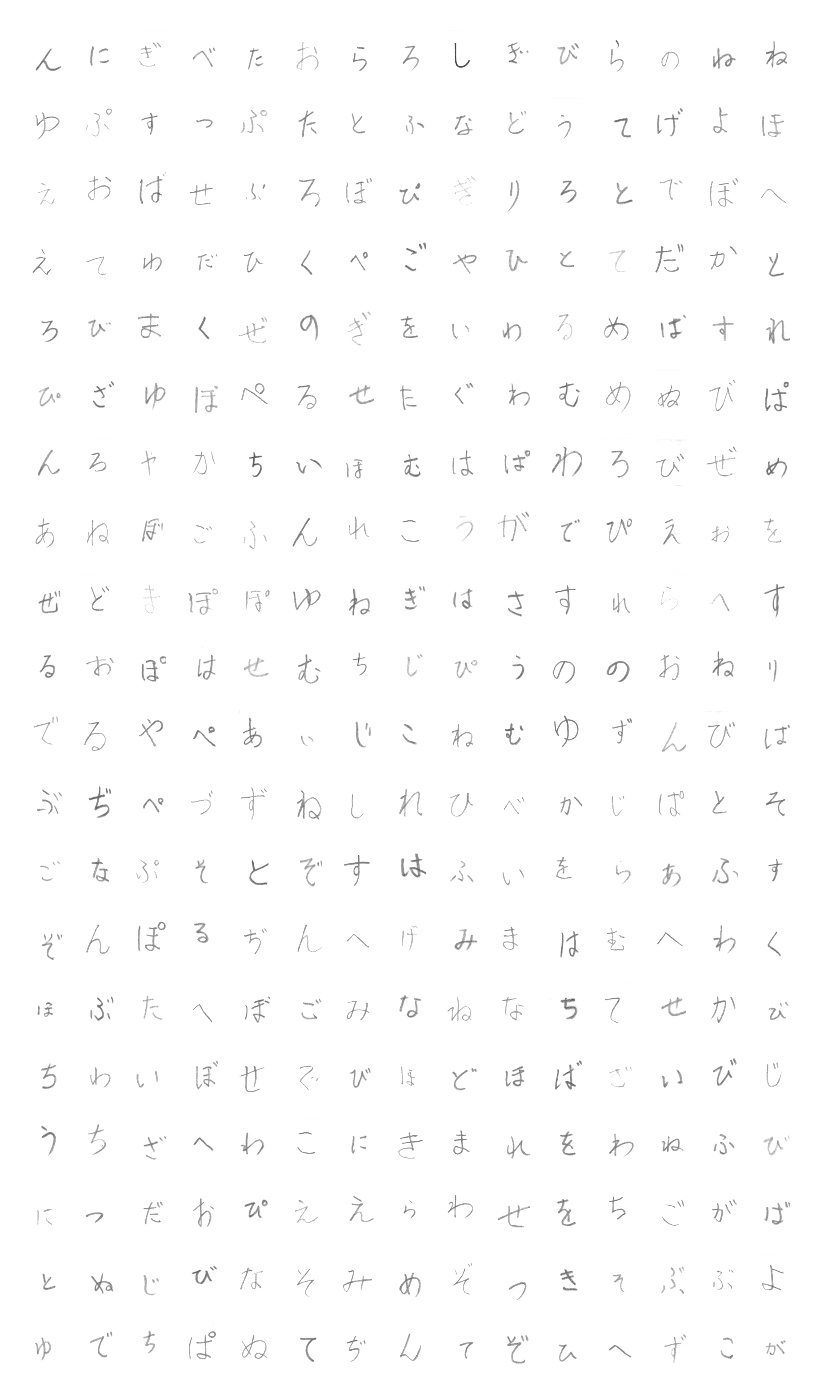 んにぎべたおらろしぎびらのねね
ゆぷすつぷたとふなどうてげよほ
えおばせぶろぼぴぎりろとでぼへ
えてわだひくぺごやひとてだかと
ろびまくぜのぎをいわるめばすれ
ぴざゆぼぺるせたぐわむめぬびぱ
んろやかちいほむはぱわろびぜめ
あねぼごふんれこうがでぴえおを
ぜどまぽぽゆねぎはさすれらへす
るおぽはせむちじぴうののおねり
でるやぺあいじこねむゆずんびば
ぶぢぺづずねしれひべかじぱとそ
ごなぷそとぞすはふいをらあふす
ぞんぽるぢんへげみまはむへわく
ほぶたへぼごみなねなちてせかび
ちわいぼせでびほどほばごいびじ
うちざへわこにきまれをわねふび
につだおぴええらわせをちごがば
とぬじびなそみめぞつきそぶぶよ
ゆでちぱぬてぢんてぞひへずこが